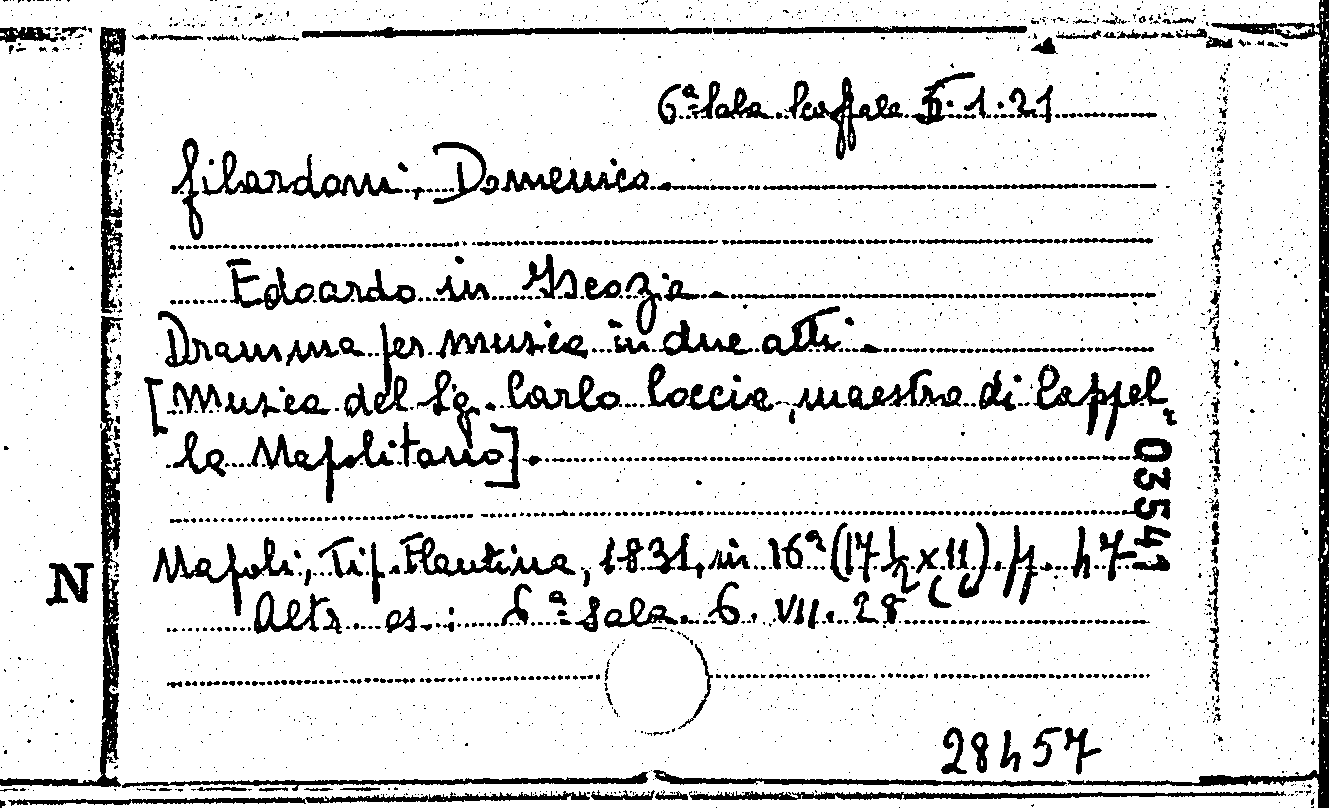 6ª Sala. Scaffale II. 1. 21
Gilardoni, Domenico.
Edoardo in Iscozia.
Dramma per musica in due atti.
[Musica del Sig. Carlo Coccia, maestro di Cappel-
la Napolitano].
03541
Napoli, Tip. Flautina, 1831, in 16° (17 ½ x 11). pp. 47
N
Altr. es.: 6ª Sala. 6. VII. 28
28457